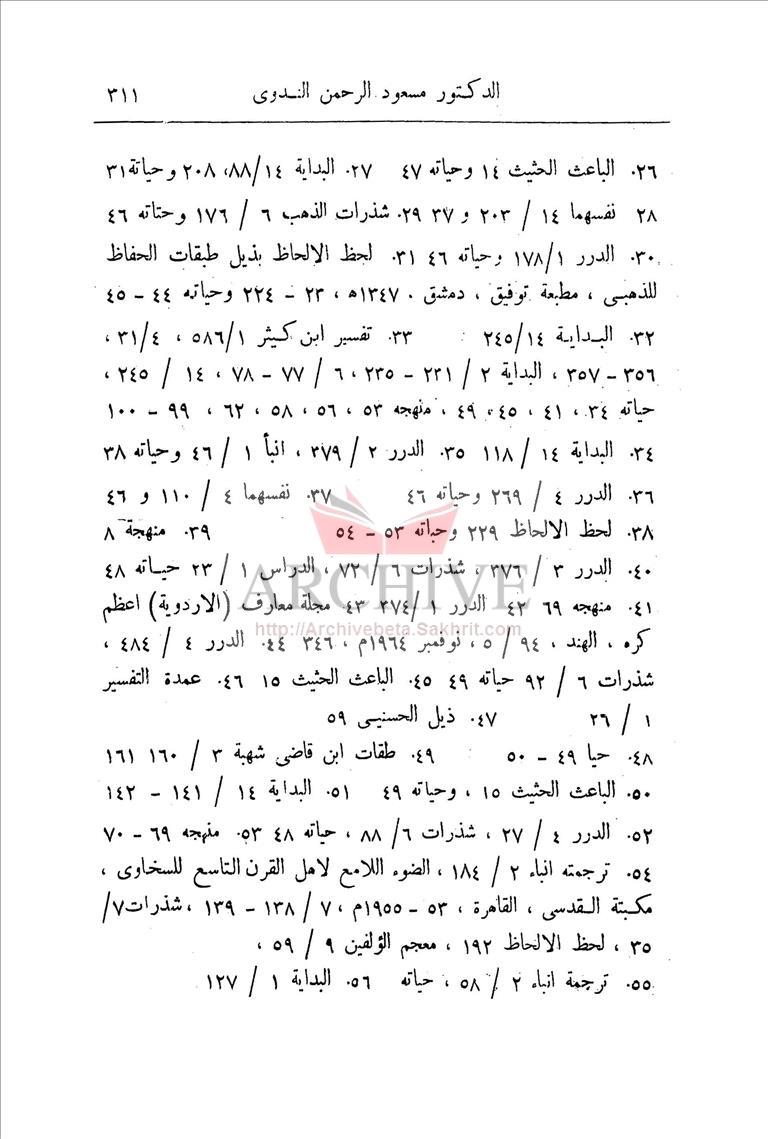 الدكتور مسعود الرحمن الندوى ٣١١
٢٦. الباعث الحثيث ١٤ وحياته ٤٧ ٢٧. البداية ٨٨/١٤، ٢٠٨ وحياتة٣١
٢٨ نفسهما ١٤ / ٢٠٣ و ٣٧ ٢٩. شذرات الذهب ٦ / ١٧٦ وحتاته ٤٦
٣٠. الدرر ١٧٨/١ وحياته ٤٦ ٣١. لحظ الالحاظ بذيل طبقات الحفاظ
للذهبى ، مطبعة توفيق ، دمشق . ١٣٤٧ھ ، ٢٣ – ٢٢٤ وحياته ٤٤ – ٤٥
٣٢. البداية ٢٤٥/١٤ ٣٣. تفسير ابن كثير ٥٨٦/١ ، ٣١/٤ ،
٣٥٦ – ٣٥٧ ، البداية ٢ / ٢٣١ – ٢٣٥ ، ٦ / ٧٧ – ٧٨ ، ١٤ / ٢٤٥ ،
حياته ٣٤ ، ٤١ ، ٤٥ ، ٤٩ ، منهجه ٥٣ ، ٥٦ ، ٥٨ ، ٦٢ ، ٩٩ – ١٠٠
٣٤. البداية ١٤ / ١١٨ ٣٥. الدرر ٢ / ٣٧٩ ، انبأ ١ / ٤٦ وحياته ٣٨
٣٦. الدرر ٤ / ٢٦٩ وحياته ٤٦ ٣٧. نفسهما ٤ / ١١٠ و ٤٦
٣٨. لحظ الالحاظ ٢٢٩ وحياته ٥٣ – ٥٤ ٣٩. منهجة ٨
٤٠. الدرر ٣ / ٣٧٦ ، شذرات ٦ / ٧٢ ، الدراس ١ / ٢٣ حياته ٤٨
ARCHIVE
٤١. منهجه ٦٩ ٤٢ الدرر ١ / ٣٧٤ ٤٣ مجلة معارف (الاردوية) اعظم
http://Archivebeta.Sakhrit.com
كره ، الهند ، ٩٤ / ٥ ، نوفمبر ١٩٦٤م ، ٣٤٦ ٤٤. الدرر ٤ / ٤٨٤ ،
شذرات ٦ / ٩٢ حياته ٤٩ ٤٥. الباعث الحثيث ١٥ ٤٦. عمدة التفسير
١ / ٢٦ ٤٧. ذيل الحسنيى ٥٩
٤٨. حيا ٤٩ – ٥٠ ٤٩. طقات ابن قاضى شهبة ٣ / ١٦٠ ١٦١
٥٠. الباعث الحثيث ١٥ ، وحياته ٤٩ ٥١. البداية ١٤ / ١٤١ – ١٤٢
٥٢. الدرر ٤ / ٢٧ ، شذرات ٦/ ٨٨ ، حياته ٤٨ ٥٣. منهجه ٦٩ – ٧٠
٥٤. ترجمته انباء ٢ / ١٨٤ ، الضوء اللامع لاهل القرن التاسع للسخاوى ،
مكبتة القدسى ، القاهرة ، ٥٣ – ١٩٥٥م ، ٧ / ١٣٨ – ١٣٩ ، شذرات٧/
٣٥ ، لحظ الالحاظ ١٩٢ ، معجم الؤلفين ٩ / ٥٩ ،
٥٥. ترجمة انباء ٢ / ٥٨ ، حياته ٥٦. البداية ١ / ١٢٧